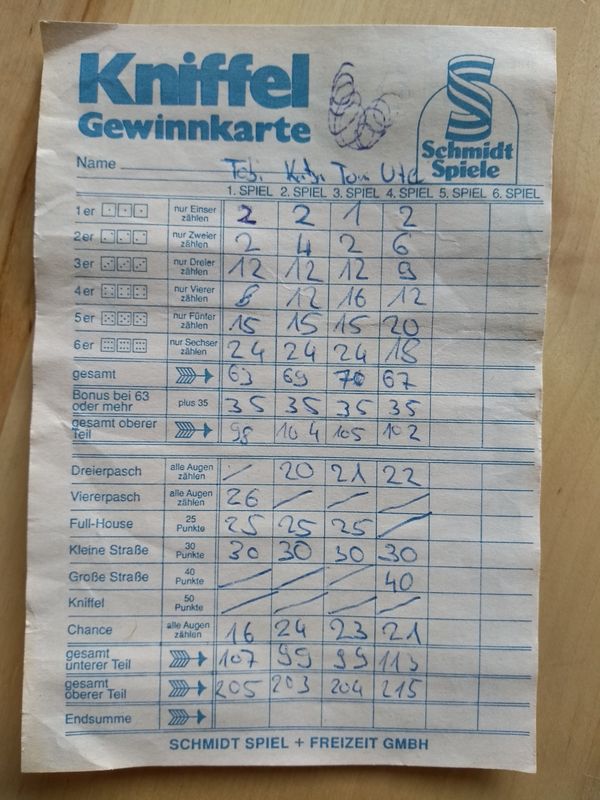 Kniffel
Gewinnkarte
Schmidt
Spiele
Name Tobi Tom Ute
1. SPIEL 2. SPIEL 3. SPIEL 4. SPIEL 5. SPIEL 6. SPIEL
1er nur Einser zählen 2 2 1 2
2er nur Zweier zählen 2 4 2 6
3er nur Dreier zählen 12 12 12 9
4er nur Vierer zählen 8 12 16 12
5er nur Fünfer zählen 15 15 15 20
6er nur Sechser zählen 24 24 24 18
gesamt 63 69 70 67
Bonus bei 63 oder mehr plus 35 35 35 35 35
gesamt oberer Teil 98 104 105 102
Dreierpasch alle Augen zählen / 20 21 22
Viererpasch alle Augen zählen 26 / / /
Full-House 25 Punkte 25 25 25 /
Kleine Straße 30 Punkte 30 30 30 30
Große Straße 40 Punkte / / / 40
Kniffel 50 Punkte / / / /
Chance alle Augen zählen 16 24 23 21
gesamt unterer Teil 107 99 99 113
gesamt oberer Teil 205 203 204 215
Endsumme
SCHMIDT SPIEL + FREIZEIT GMBH